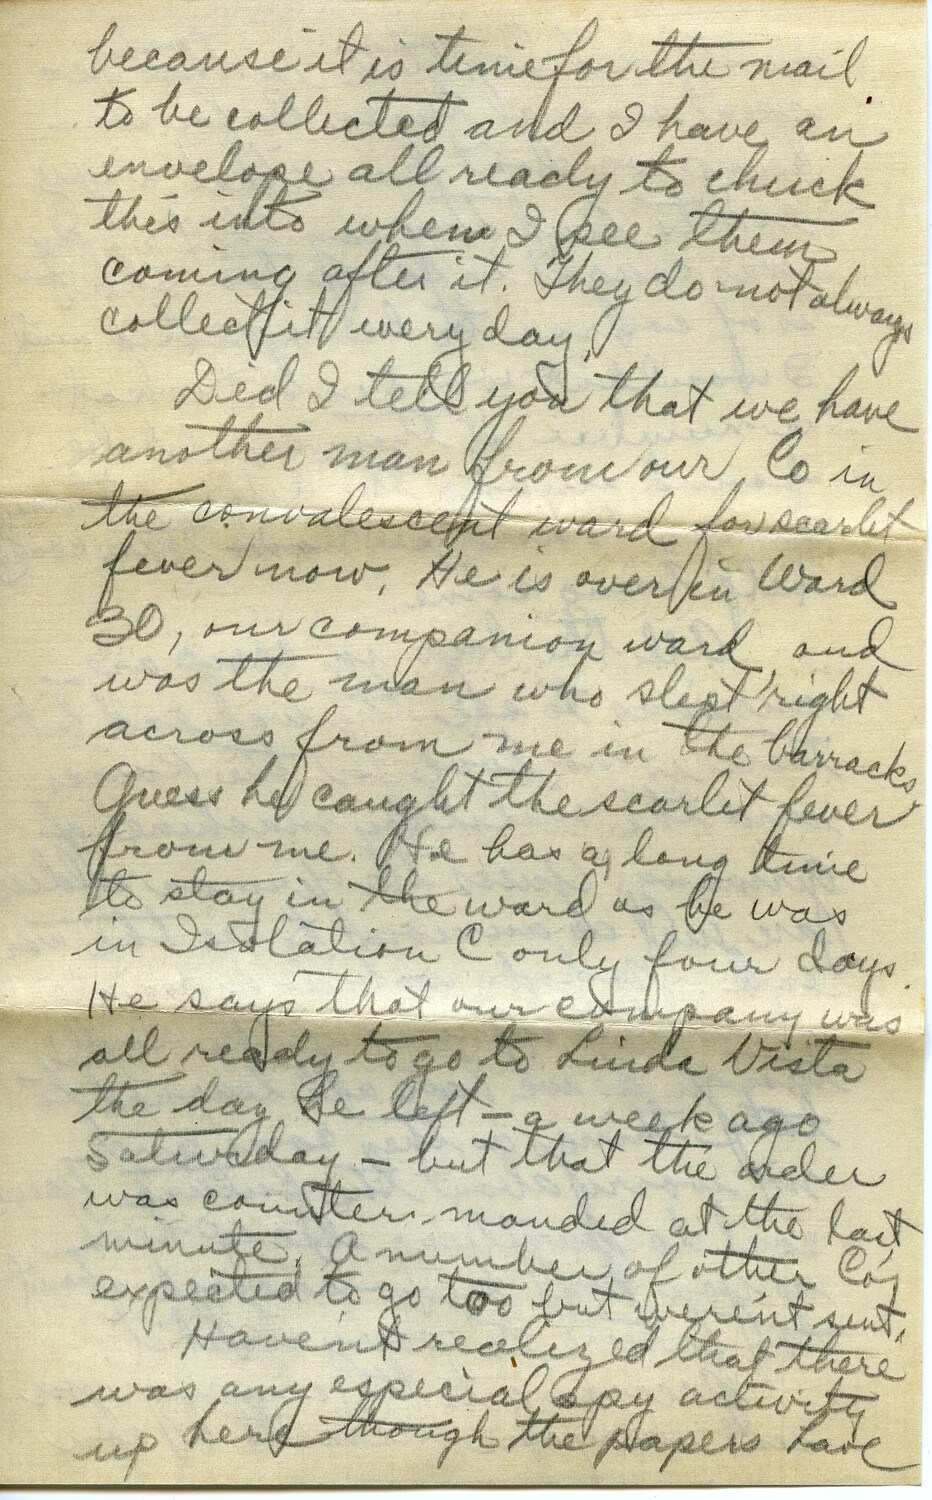 because it is time for the mail
to be collected and I have an
envelope all ready to chuck
this into when I see them
coming after it. They do not always
collect it every day.
Did I tell you that we have
another man from our Co in
the convalescent ward for scarlet
fever now. He is over in Ward
30, our companion ward and
was the man who slept right
across from me in the barracks.
Guess he caught the scarlet fever
from me. He has a long time
to stay in the ward as he was
in Isolation C only four days.
He says that our company was
all ready to go to Linda Vista
the day he left – a week ago
Saturday – but that the order
was counter manded at the last
minute. A number of other Co's
expected to go too but weren't sent.
Haven't realized that there
was any especial spy activity
up here though the papers have